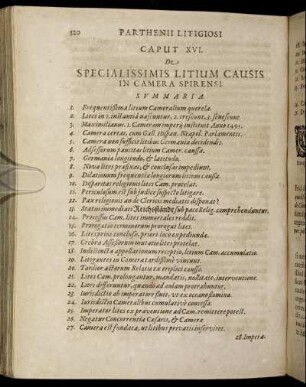 520 PARTHENII LITIGIOSI
CAPUT XVI.
De
SPECIALISSIMIS LITIUM CAUSIS
IN CAMERA SPIRENSI.
SUMMARIA
1. Frequentissima litium Cameralium querela.
2. Lites in 1. instantia nascuntur, 2. crescunt, 3. senescunt
3. Maximilianus. 1. Cameram imperij instituit Anno 1495.
4. Camera certat, cum Gall. Hispan. Neapol. Parlamentis.
5. Camera non sufficit litibus Germaniæ decidendis.
6. Assessorum paucitas litium Camer. causa.
7. Germaniæ longitudo, & latitudo.
8. Nova lites præsentes, & conclusas impediunt.
9. Dilationum frequentia longiorum litium causa.
10. Disparitas religionis lites Cam. protelat.
11. Periculosum est sub judice suspecto litigare.
12. Pax religionis an de Clericis mediatis disponat?
13. Status immediati Reichsstände sub pace Relig. comprehenduntur.
14. Processus Cam. lites immortales reddit.
15. Prorogatio terminorum prorogat lites.
16. Lites primo conclusæ, priore loco expediendæ.
17. Crebra Assessorum mutatio lites protelat.
18. Indistincta appellationum receptio, litium Cam. accumulatio
19. Litigantes in Camera tardissime vincunt.
20. Tardior actorum Relatio ex triplici causa.
21. Lites Cam. prolongantur, mandatis, nullitate, interventione.
22. Lites differuntur, quando ad calum provehuntur.
23. Jurisdictio ab imperatore fluit, ut ex oceano flumina.
24. Jurisdictio Cameralibus cumulative concessa.
25. Imperator lites ex præventione ad Cam. remittere potest.
26. Negatur Concurrentia Cæsaris, & Camera.
27. Camera est fundata, ut litibus privatis inserviret.
28. Impera-